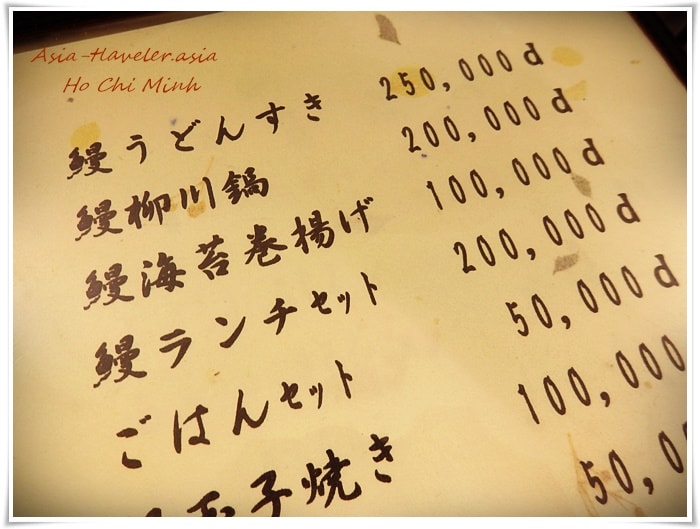 Asia-traveler.asia
Ho Chi Minh
鰻うどんすき 250,000 d
鰻柳川鍋 200,000 d
鰻海苔巻揚げ 100,000 d
鰻ランチセット 200,000 d
ごはんセット 50,000 d
玉子焼き 100,000
50,0